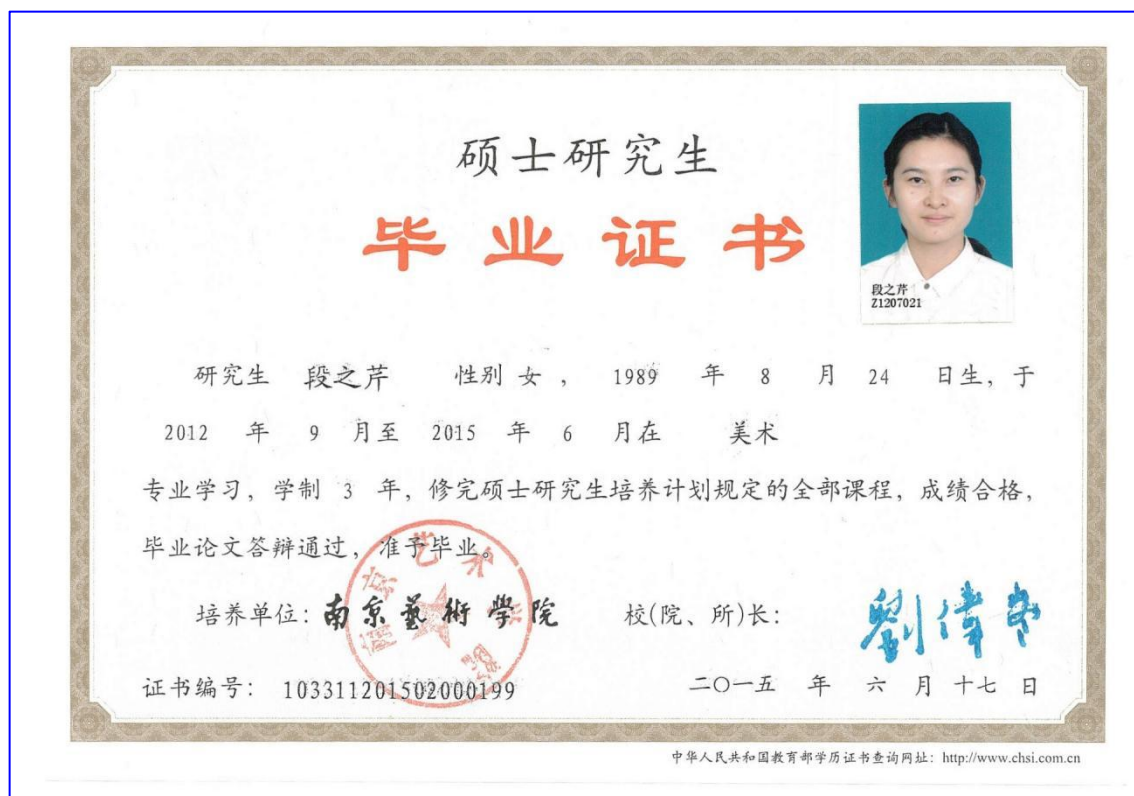 硕士研究生
毕业证书
段之芹
Z1207021
研究生 段之芹 性别 女 , 1989 年 8 月 24 日生, 于
2012 年 9 月至 2015 年 6 月在 美术
专业学习, 学制 3 年, 修完硕士研究生培养计划规定的全部课程, 成绩合格,
毕业论文答辩通过, 准予毕业。
南京艺术学院
培养单位: 南京藝術學院 校(院、所)长: 劉偉冬
证书编号: 103311201502000199 二〇一五 年 六 月 十七 日
中华人民共和国教育部学历证书查询网址: http://www.chsi.com.cn